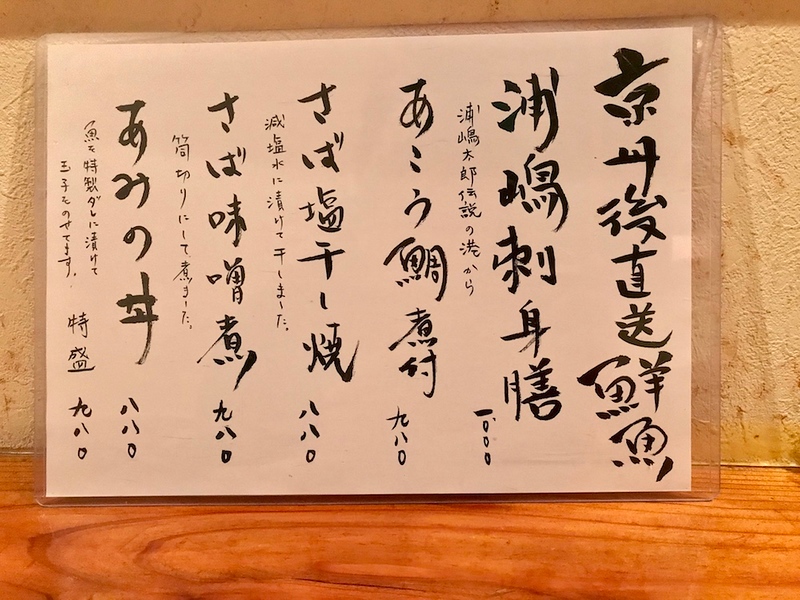 京丹後直送鮮魚
浦嶋刺身膳
浦嶋太郎伝説の港から
一〇〇〇
あこう鯛煮付
九八〇
さば塩干し焼
減塩水に漬けて干しました。
八八〇
さば味噌煮
筒切りにして煮ました。
九八〇
あみの丼
八八〇
魚を特製ダレに漬けて
玉子をのせてます。
特盛 九八〇